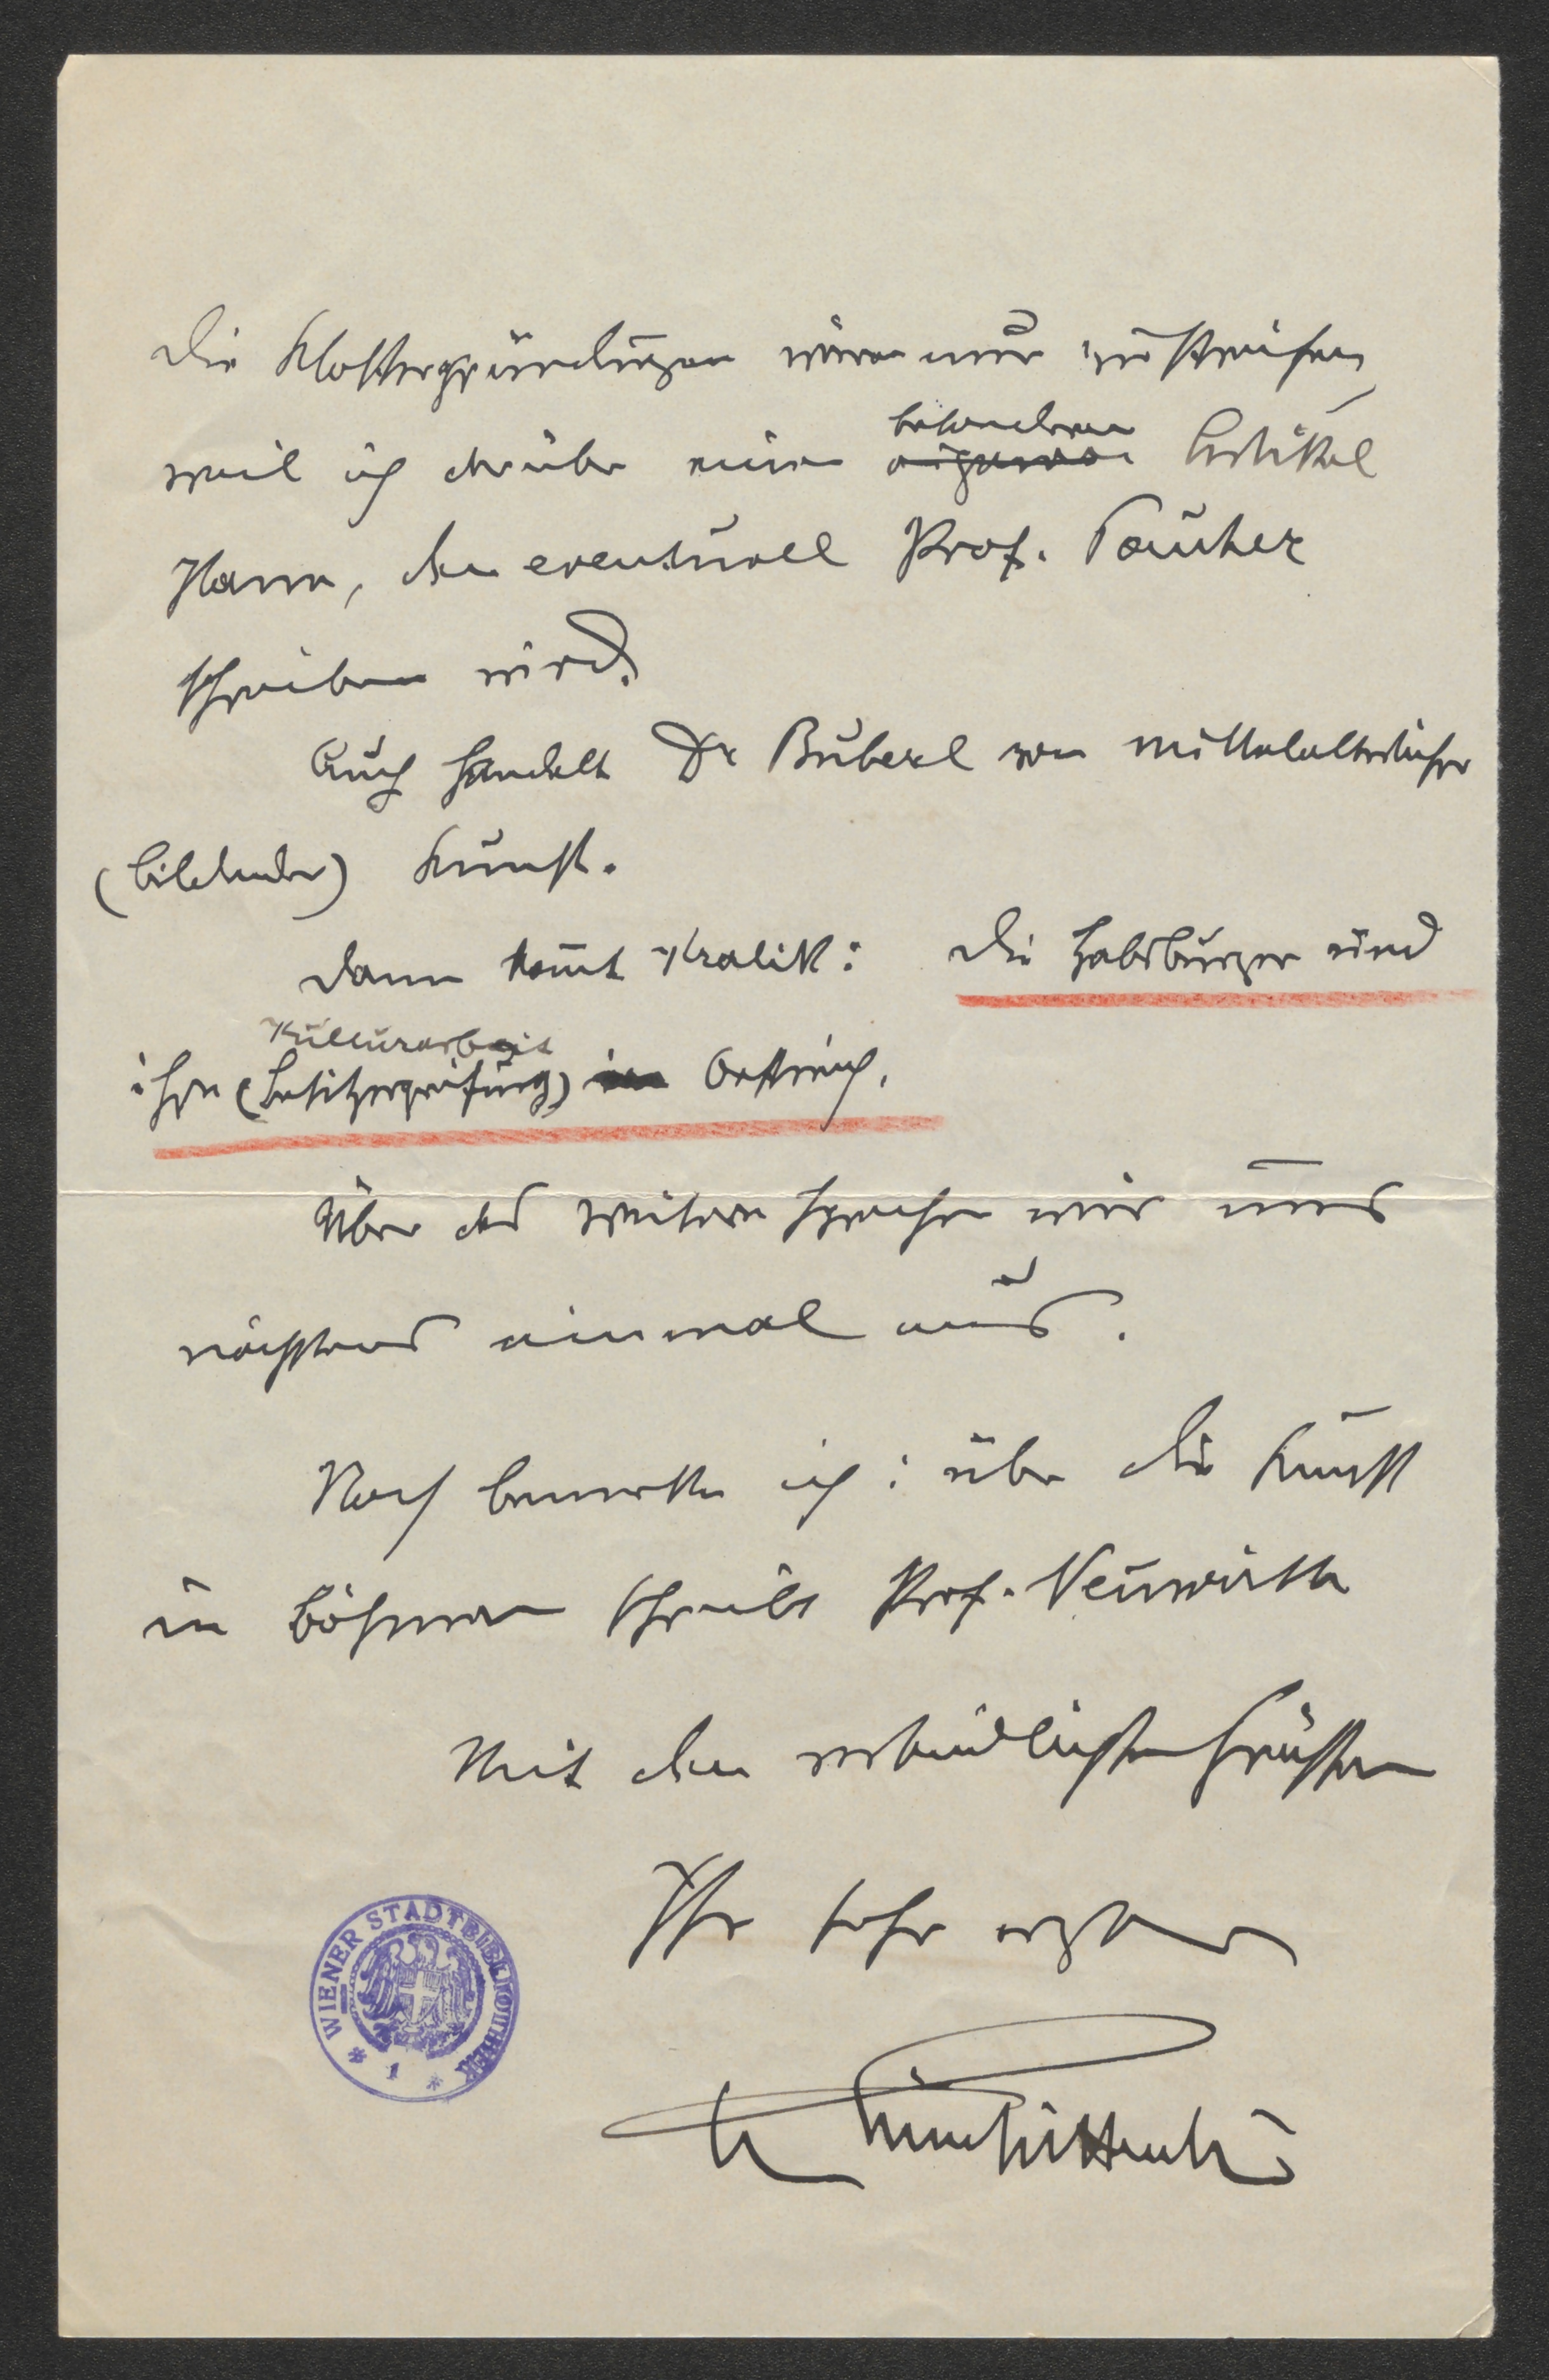 Die Klostergründungen wären nur zu streifen,
weil ich darüber einen besonderen Artikel
plane, den eventuell Prof. Tauber
schreiben wird.
Auch handelt Dr Buberl von mittelalterlicher
(bildender) Kunst.
Dann kommt Kralik: Die Habsburger und
Kulturarbeit
ihre (Besitzergreifung) in Östreich.
Über das weitere sprechen wir uns
nächstens einmal aus.
Noch bemerke ich: über die Kunst
in Böhmen schreibt Prof. Neuwirth
Mit den verbindlichsten Grüßen
Ihr sehr ergebener
WIENER STADTBIBLIOTHEK
* 1 *